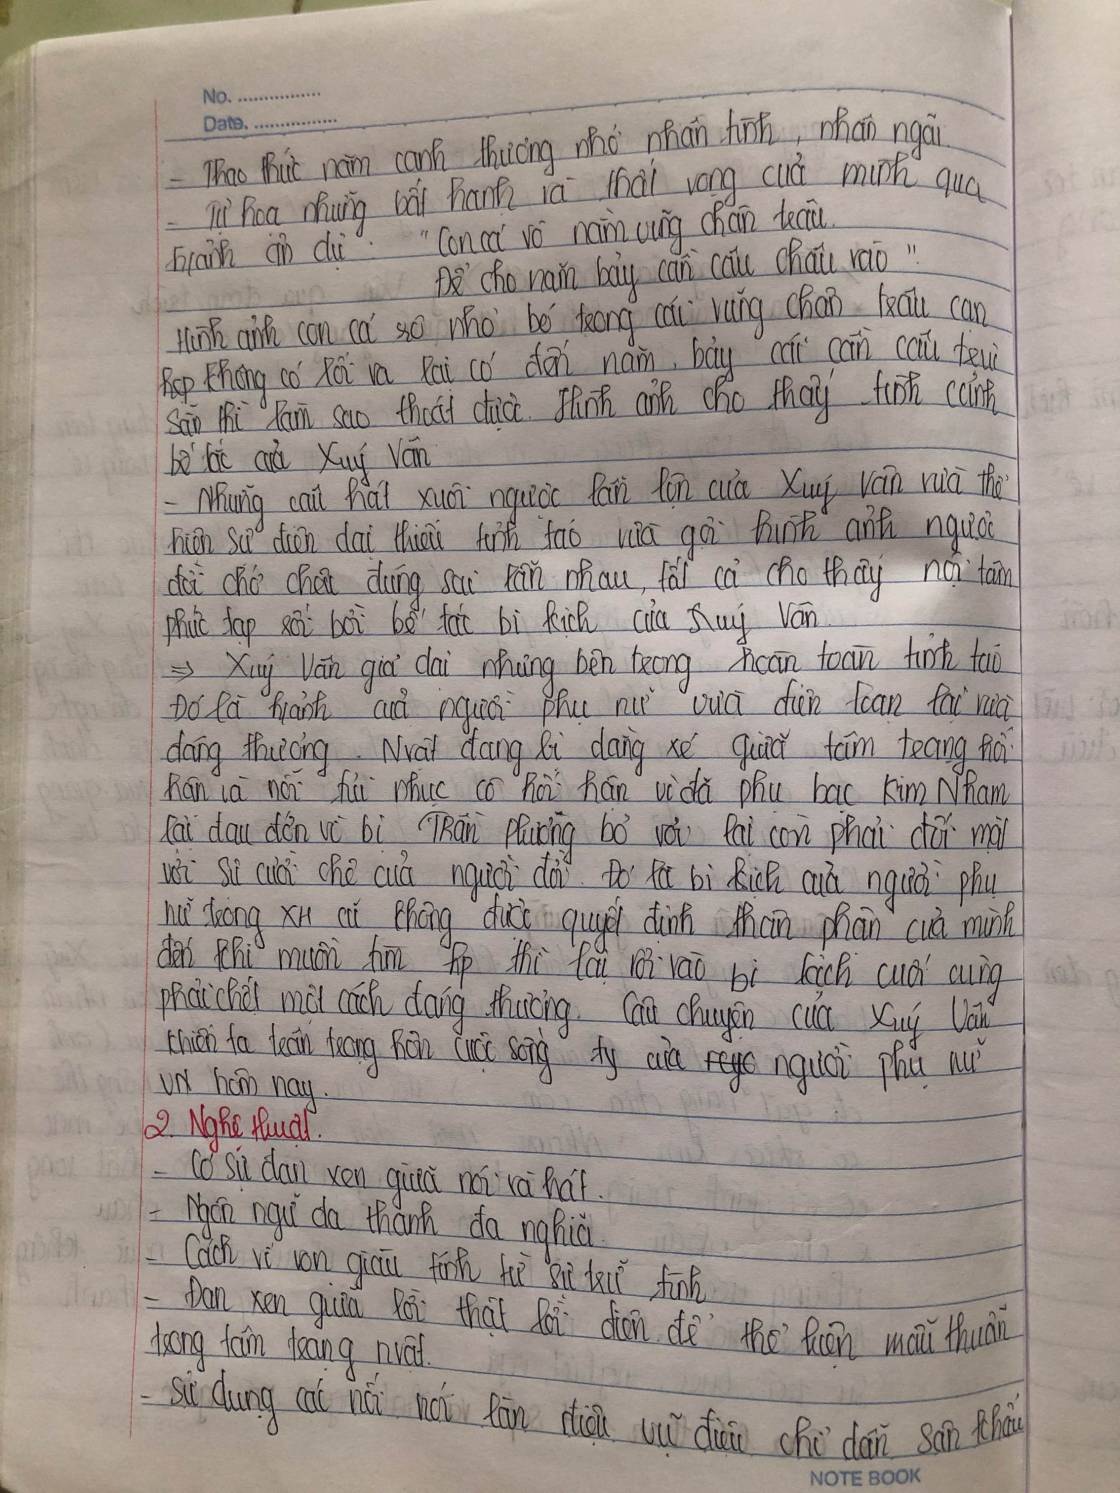 No. ................
Date. ................
- Thao thức năm canh thương nhớ nhân tình, nhân ngãi.
- Tự họa những bất hạnh và thất vọng của mình qua
h/ảnh ẩn dụ: "Con cá rô nằm vũng chân trâu.
Để cho năm bảy cần câu châu vào".
Hình ảnh con cá rô nhỏ bé trong cái vũng chân trâu cạn
hẹp không có lối ra lại có đến năm, bảy cái cần câu trực
sẵn thì làm sao thoát được. Hình ảnh cho thấy tình cảnh
bế tắc của Xuý Vân
- Những câu hát xuôi ngược lẫn lộn của Xuý Vân vừa thể
hiện sự điên dại thiếu tỉnh táo vừa gợi hình ảnh người
đời đúng sai lẫn nhau, tất cả cho thấy nội tâm
phức tạp rối bời bế tắc bi kịch của Xuý Vân
⇒ Xuý Vân giả dại nhưng bên trong hoàn toàn tỉnh táo
Đó là h/ảnh của người phụ nữ vừa điên loạn lại vừa
đáng thương. Nvật đang bị dằng xé giữa tâm trạng hối
hận và nỗi tủi nhục cô hối hận vì đã phụ bạc Kim Nham
lại đau đớn vì bị Trần Phương bỏ rơi lại còn phải đối mặt
với sự cười chê của người đời. Đó là bi kịch của người phụ
nữ trong XH cũ không được quyết định thân phận của mình
đến khi muốn tìm hp thì lại rơi vào bi kịch cuối cùng
phải chết một cách đáng thương. Câu chuyện của Xuý Vân
khiến ta trân trọng hơn cuộc sống ty của người phụ nữ
VN hôm nay.
2. Nghệ thuật.
- Có sự đan xen giữa nói và hát.
- Ngôn ngữ đa thanh đa nghĩa.
- Cách ví von giàu tính tự sự trữ tình
- Đan xen giữa lời thật lời điên để thể hiện mâu thuẫn
trong tâm trạng nvật.
- Sử dụng các nói làn điệu vũ điệu chỉ dẫn sân khấu
NOTE BOOK